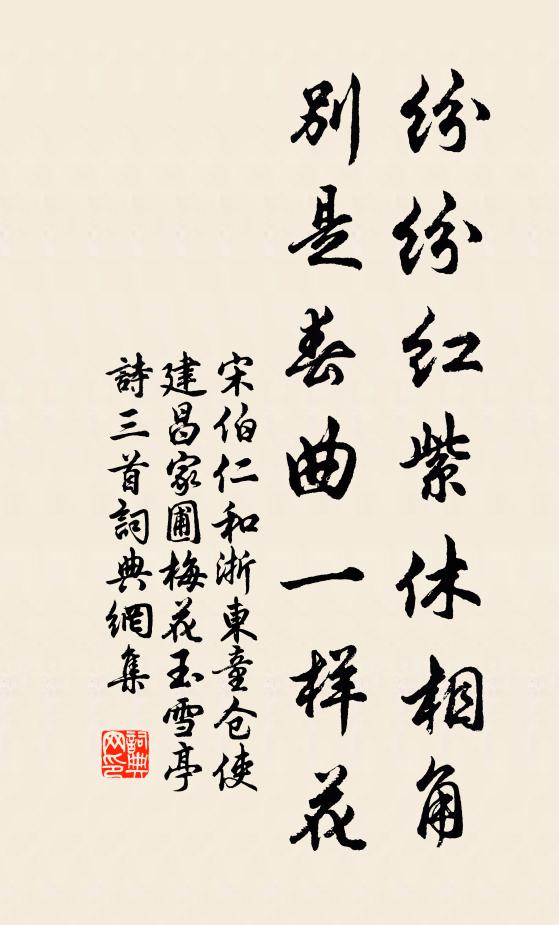 纷纷红紫休相角
别是春曲一样花
宋伯仁和浙東童仓使
建昌家圃梅花玉雪亭
詩三首詞典網集
詞典网印